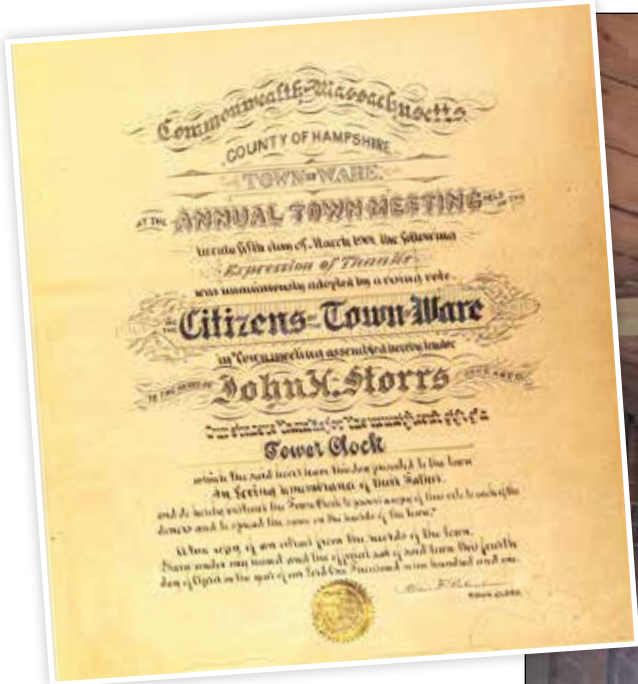 Commonwealth Massachusetts
COUNTY OF HAMPSHIRE
TOWN OF WARE.
AT THE ANNUAL TOWN MEETING HELD THE
twenty fifth day of March 1901, the following
Expression of Thanks
was unanimously adopted by a rising vote.
THE Citizens = Town Ware
in Town meeting assembled hereby tender
TO THE HEIRS OF John H. Storrs DECEASED
Our sincere Thanks for the munificent gift of a
Tower Clock
which the said heirs have this day presented to the town
In loving remembrance of their Father.
and do hereby instruct the Town Clerk to present a copy of this vote to each of the
donors and to spread the same on the records of the town."
A true copy of an extract from the records of the town.
Given under my hand and the official seal of said town this fourth
day of April in the year of our Lord One Thousand nine hundred and one.
TOWN CLERK